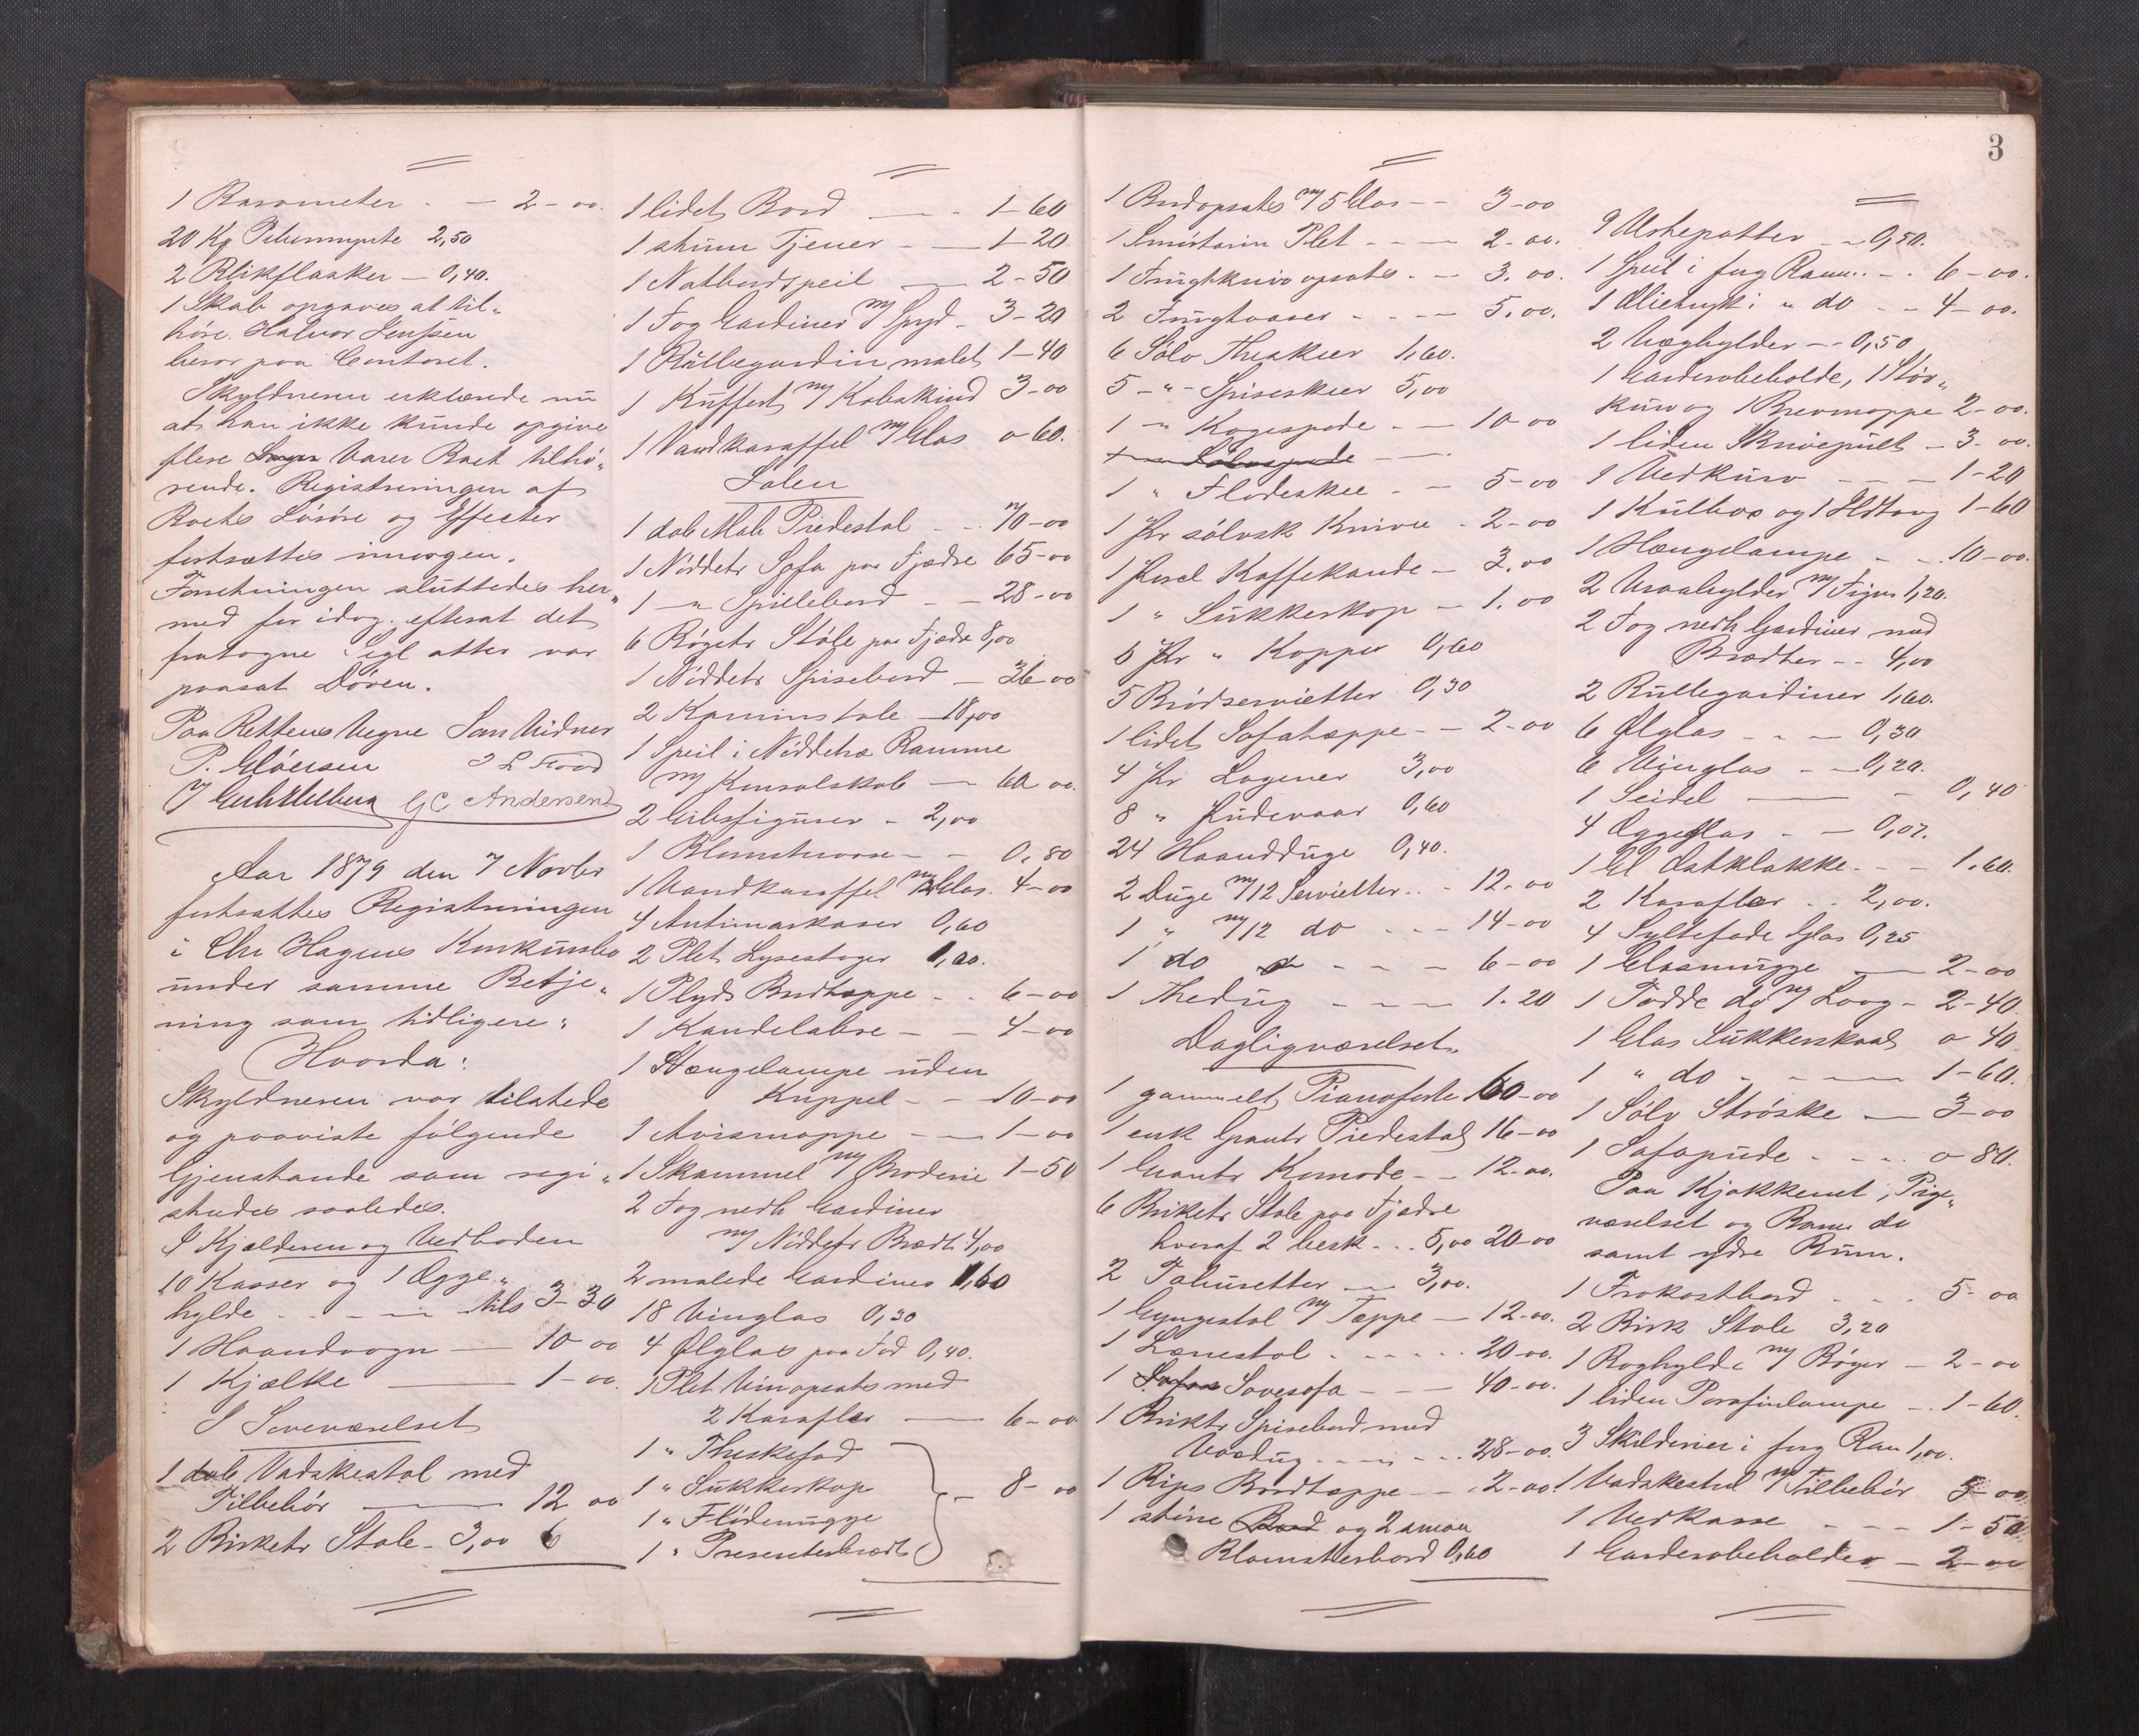 1 Barometer - 2-00.
20 Kg 2,50
2 Blikflasker - 0,40.
1 Skab opgaves at til„
høre Halvor Jenssen
beror paa Contoret.
Skyldneren erklærede nu
at han ikke kunde opgive
flere Varer Boet tilhø„
rende. Registreringen af
Boets Løsøre og Effecter
fortsættes imorgen.
Forretningen sluttedes her„
med for idag, efterat det
fratagne Segl atter var
paasat Døren.
Paa Rettens Vegne Som Vidner
P.
G C Andersen
Aar 1879 den 7 Novbr
fortsattes Registreringen
i Chr Hagens Konkursbo
under samme Betje„
ning som tidligere„
Hvorda:
Skyldneren var tilstede
og paaviste følgende
Gjenstande som regi„
streredes saaledes.
I Kjælderen og Vedboden
10 Kasser og 1 Ægge„
hylde - - - 3-30
1 Haandvogn - 10 00
1 Kjælke - 1-00.
I Soveværelset
1 dob Vadskestol med
Tilbehør - 12 00
2 Birketr Stole - 3,00 6
1 lidet Bord - 1-60
1 stum Tjener - 1-20
1 Natbordspeil - 2-50
1 Fag Gardiner m/ Spyd - 3-20
1 Rullegardin malet 1-40
1 Kuffert m/ 3-00
1 Vandkaraffel m/ Glas 0-60.
Salen
1 dob Mah Piedestal - 70-00
1 Nøddetr Sofa paa Fjædre 65-00
1 -„ Spillebord - 28-00
6 Bøgetr Stole paa Fjædre 8,00
1 Nøddetr Spisebord - 36 00
2 Kaminstole - 18,00
1 Speil i Nøddetræ Ramme
m/ Konsolskab - 60 00.
2 Gibsfigurer - 2,00
1 Blomstervase - - 0,80
1 Vandkaraffel m/ 2 Glas. 4-00
4 Antimakasser 0,60
2 Plet Lysestager 1,00.
1 Plyds Bordtæppe - - 6-00
1 Kandelabre - - 4-00
1 Hængelampe uden
Kuppel - - 10-00
1 Avismappe - - 1-00
1 Skammel m/ Broderie 1-50
2 Fag nedh Gardiner
m/ Nøddetr Brædt. 4,00
2 malede Gardiner 1,60
18 Vinglas 0,30
4 Ølglas paa Fod 0,40.
1 Plet Vinopsats med
2 Karafler - 6-00
1 „ Theskefad
1 „ Sukkerkop
1 „ Flødemugge
1 „ Presenterbrædt - 8-00
3
1 Bordopsats m/ 5 Glas - - 3-00
1 Plet - - - 2-00.
1 Frugtknivopsats - - 3.00.
2 Frugtvaser - - - - 5.00.
6 Sølv Theskeer 1,60.
5 -„- Spiseskeer 5,00
1 -„ Kagespade - - 10-00
1 „ Flødeskee - - 5-00
1 Pr sølvsk Knive - 2-00
1 Porcl Kaffekande - 3.00
1 „ Sukkerkop - 1.00
6 Pr „ Kopper 0,60
5 Brødservietter 0,30
1 lidet Sofatæppe - - 2-00
4 Pr Lagener 3,00
8 „ Pudevaar 0,60
24 Haandduge 0,40.
2 Duge m/ 12 Servietter - - 12.00
1 „ m/ 12 do - - - 14-00
1 do - - - 6-00
1 Thedug - - - 1.20
Dagligværelset„
1 gammelt Pianoforte 160-00
1 enk Grantr Piedestal 16-00
1 Grantr Komode - - 12-00.
6 Birketr Stole paa Fjædre
hvoraf 2 besk - - 5,00 20-00
2 Tabusetter - 3,00.
1 Gyngestol m/ Tæppe - 12-00.
1 Lænestol - - - - - 20-00.
1 Sovesofa - - - 40-00.
1 Birktr Spisebord med
Voxdug - - - - - 28-00.
1 Rips Bordtæppe - - 2-00.
1 større og 2 smaa
Blomsterbord 0,60
9 Urtepotter - - 0,50.
1 Speil i forg Ram - - 6-00.
1 Olietryk i „ do - - 4-00.
2 Væghylder - - 0,50
1 Garderobeholde, 1 Støv„
kurv og 1 Brevmappe 2-00.
1 liden Skrivepult - 3-00.
1 Vedkurv - - - 1-20
1 Kulbox og 1 Ildtang 1-60
1 Hængelampe - - 10-00.
2 Vraahylder m/ Figur 1,20.
2 Fag nedh Gardiner med
Brædter - - 4,00
2 Rullegardiner 1,60.
6 Ølglas - - - 0,30
6 Vinglas - - 0,20.
1 Seidel - - 0,40
4 Æggeglas - - 0,07.
1 Gl Ostklokke - - - 1.60.
2 Karafler - - 2,00.
4 Syltefade Glas 0,25
1 Glasmugge - 2-00
1 Todde do m/ Laag - 2-40
1 Glas Sukkerskaal 0 40
1 „ do - - - - 1-60.
1 Sølv Strøske - 3-00
1 Sofapude - - - - 0-80.
Paa Kjøkkenet, Pige„
værelset og Barne do
samt ydre Rum.
1 Frokostbord - - - 5-00
2 Birk Stole 3,20
1 Boghylde m/ Bøger - 2-00
1 liden Parafinlampe - 1-60.
3 Skilderier i forg Ram 1,00.
1 Vadskestel m/ Tilbehør 5-00.
1 Vedkasse - - - 1-50.
1 Garderobeholder - 2-00